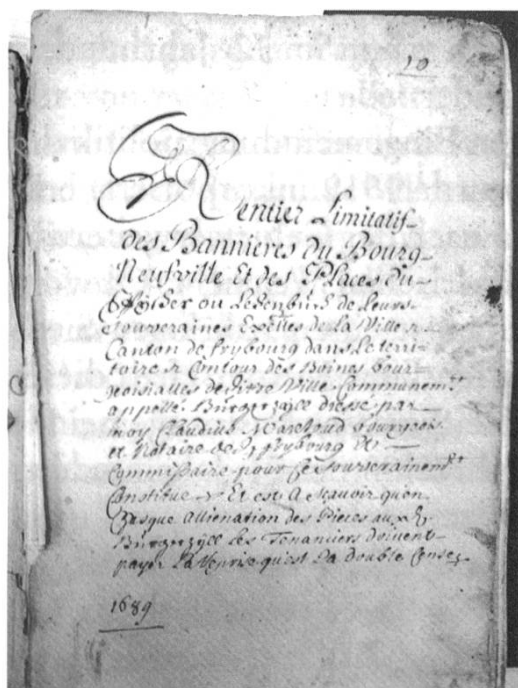 10
Rentier Limitatif
des Bannieres du Bourg
Neufville Et des Places du
ou de Leurs
Souveraines Exelles de La Ville &
Canton de frybourg dans Le terri-
toire & Contour des Boines bour-
geoisialles de ditte Ville Communemt
appellé Bürgerzijll dressé par
moy Claudius bourgeois
et Notaire de frybourg &
Commissaire pour ce Souverainemt
Constitue & Et est A scavoir quen
Chasque Allienation des Pieces au
Bürgerzijll Les Tenanciers doivent
payer La Reprise quest La double Cense
1689